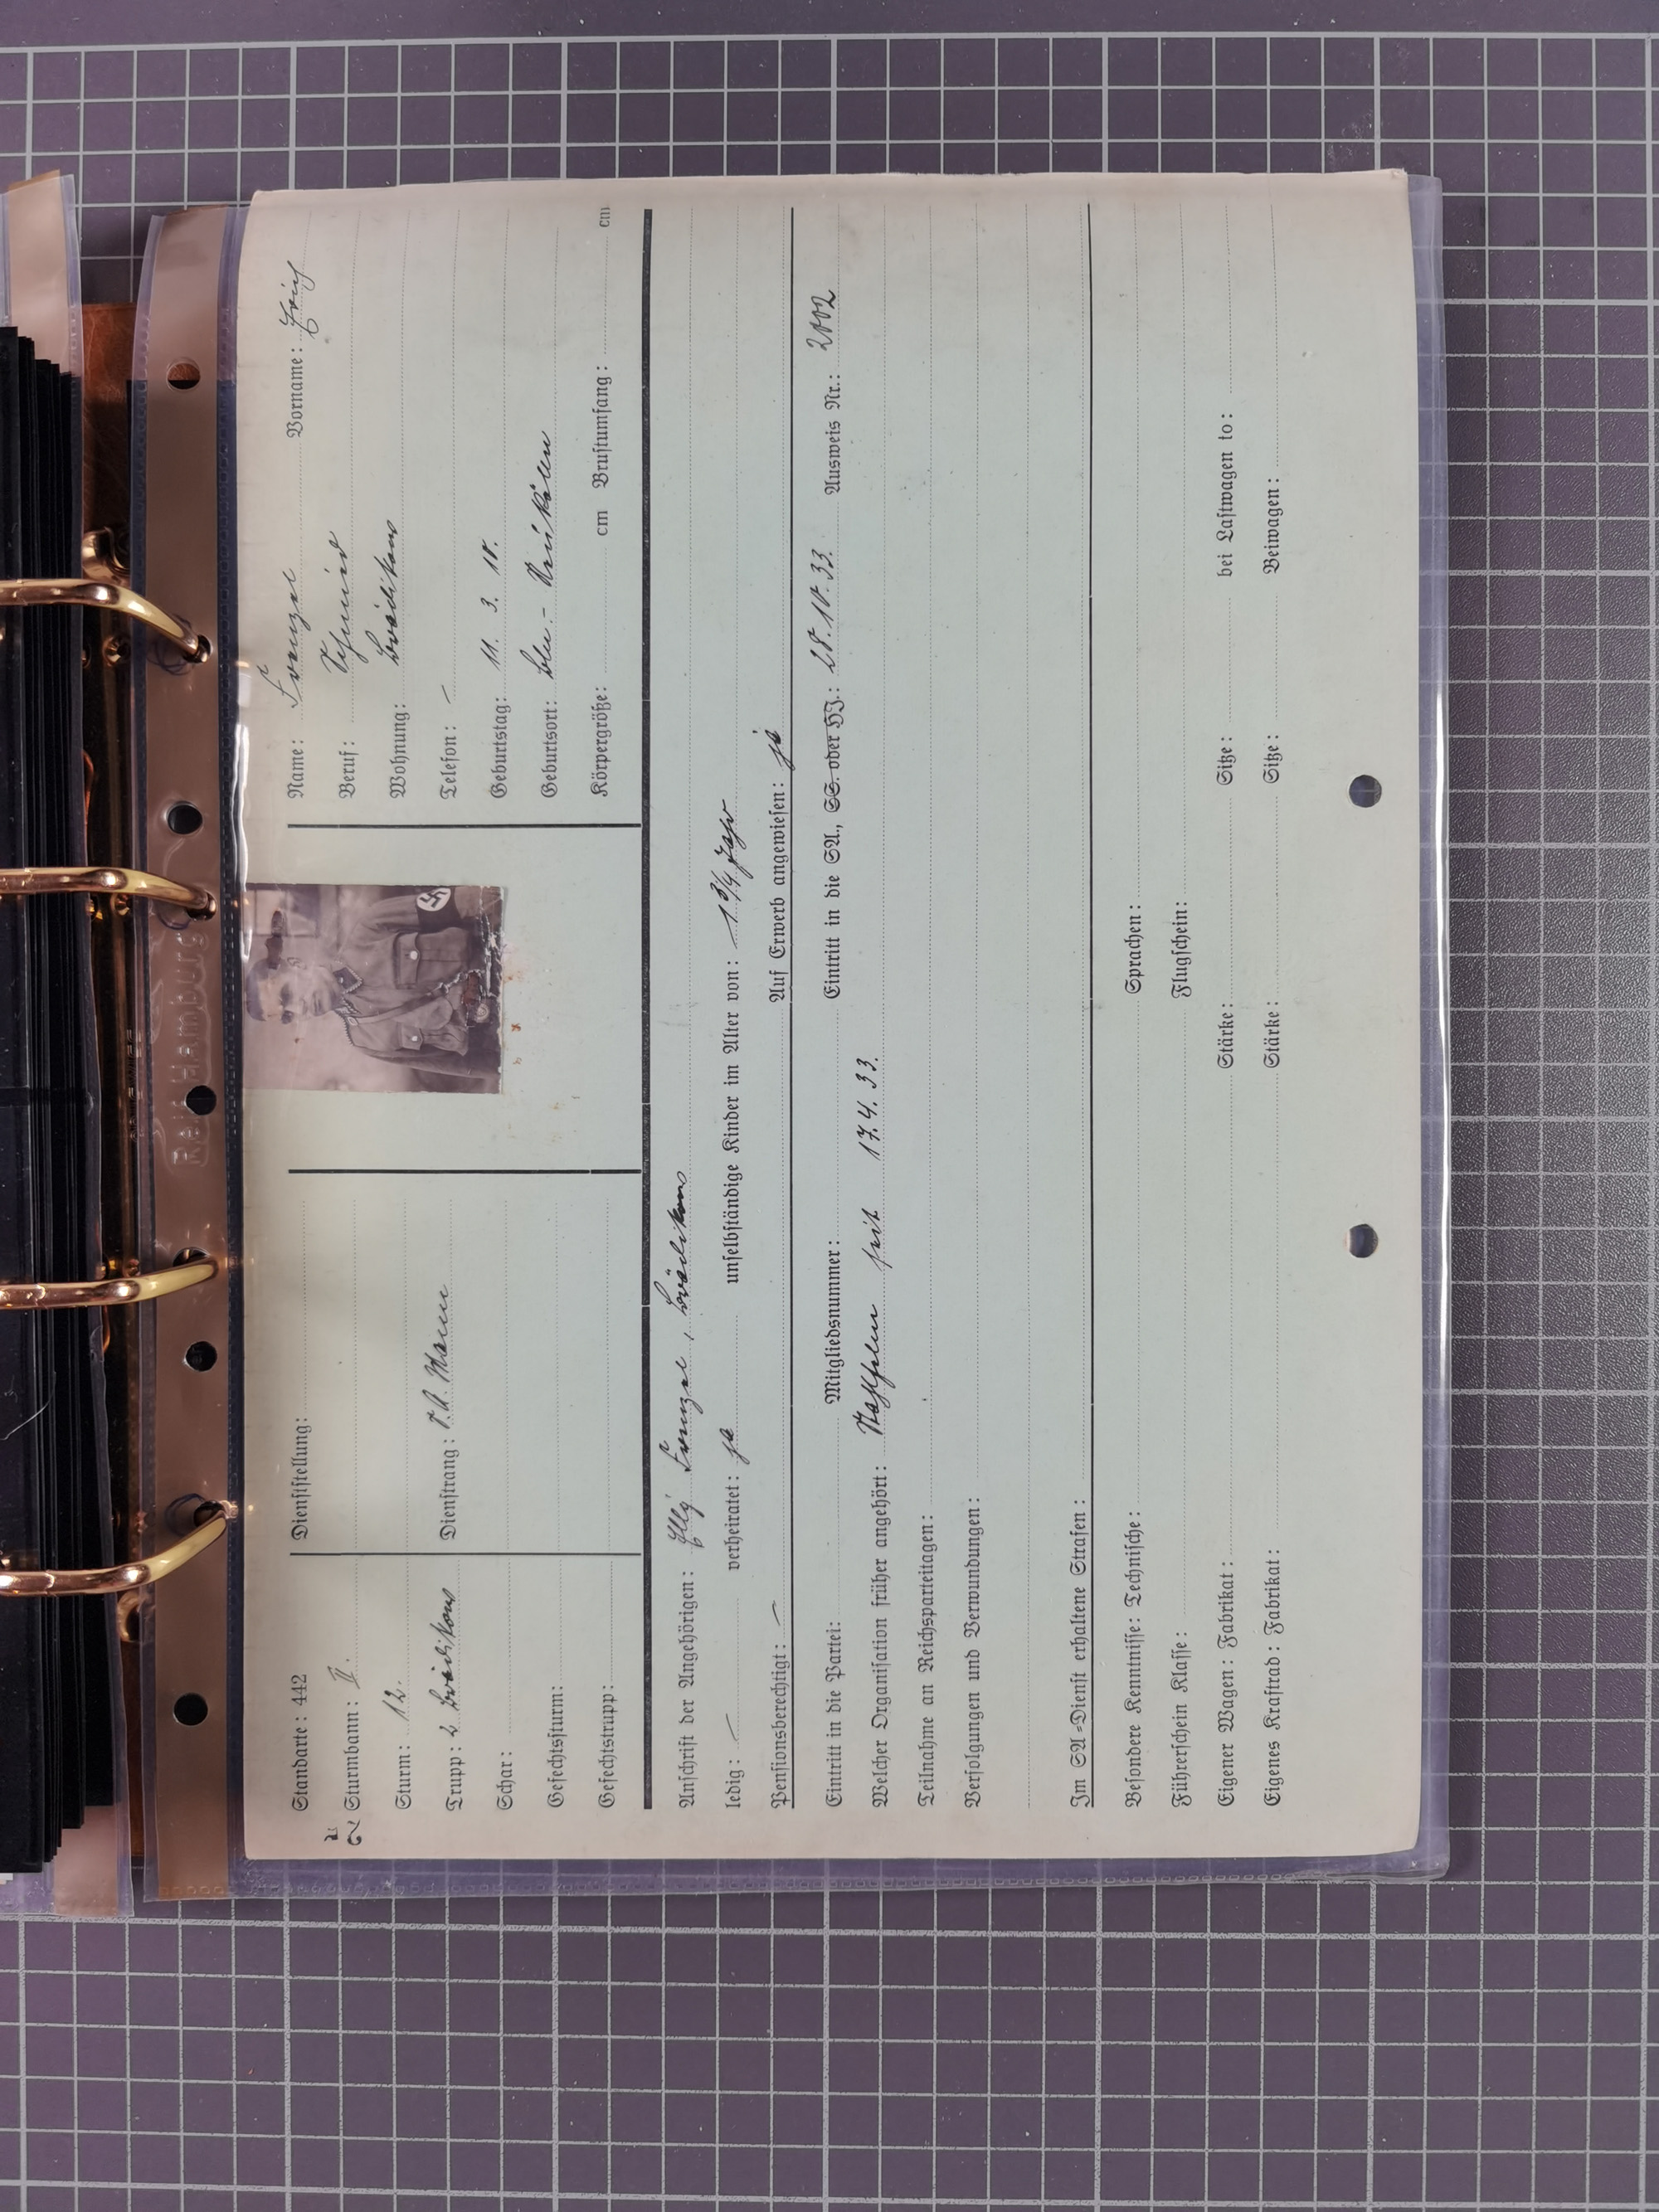 Standarte: 442
Dienststellung:
Name: Franze Vorname: Erich
Sturmbann: II.
Beruf: Schmied
Sturm: 12.
Wohnung: Brädikow
Trupp: 2 Brädikow
Dienstrang: S.A. Mann
Telefon: –
Schar:
Geburtstag: 11. 3. 10.
Gefechtssturm:
Geburtsort:
Gefechtstrupp:
Körpergröße: cm Brustumfang: cm
Anschrift der Angehörigen: Elly Franze, Brädikow
ledig: – verheiratet: ja unselbständige Kinder im Alter von: 1 3/4 Jahr
Pensionsberechtigt: – Auf Erwerb angewiesen: ja
Eintritt in die Partei: Mitgliedsnummer: Eintritt in die SA., SS. oder HJ.: 28.10.33. Ausweis Nr.: 2002
Welcher Organisation früher angehört: Stahlhelm seit 17.4.33.
Teilnahme an Reichsparteitagen:
Verfolgungen und Verwundungen:
Im SA-Dienst erhaltene Strafen:
Besondere Kenntnisse: Technische: Sprachen:
Führerschein Klasse: Flugschein:
Eigener Wagen: Fabrikat: Stärke: Sitze: bei Lastwagen to:
Eigenes Kraftrad: Fabrikat: Stärke: Sitze: Beiwagen: